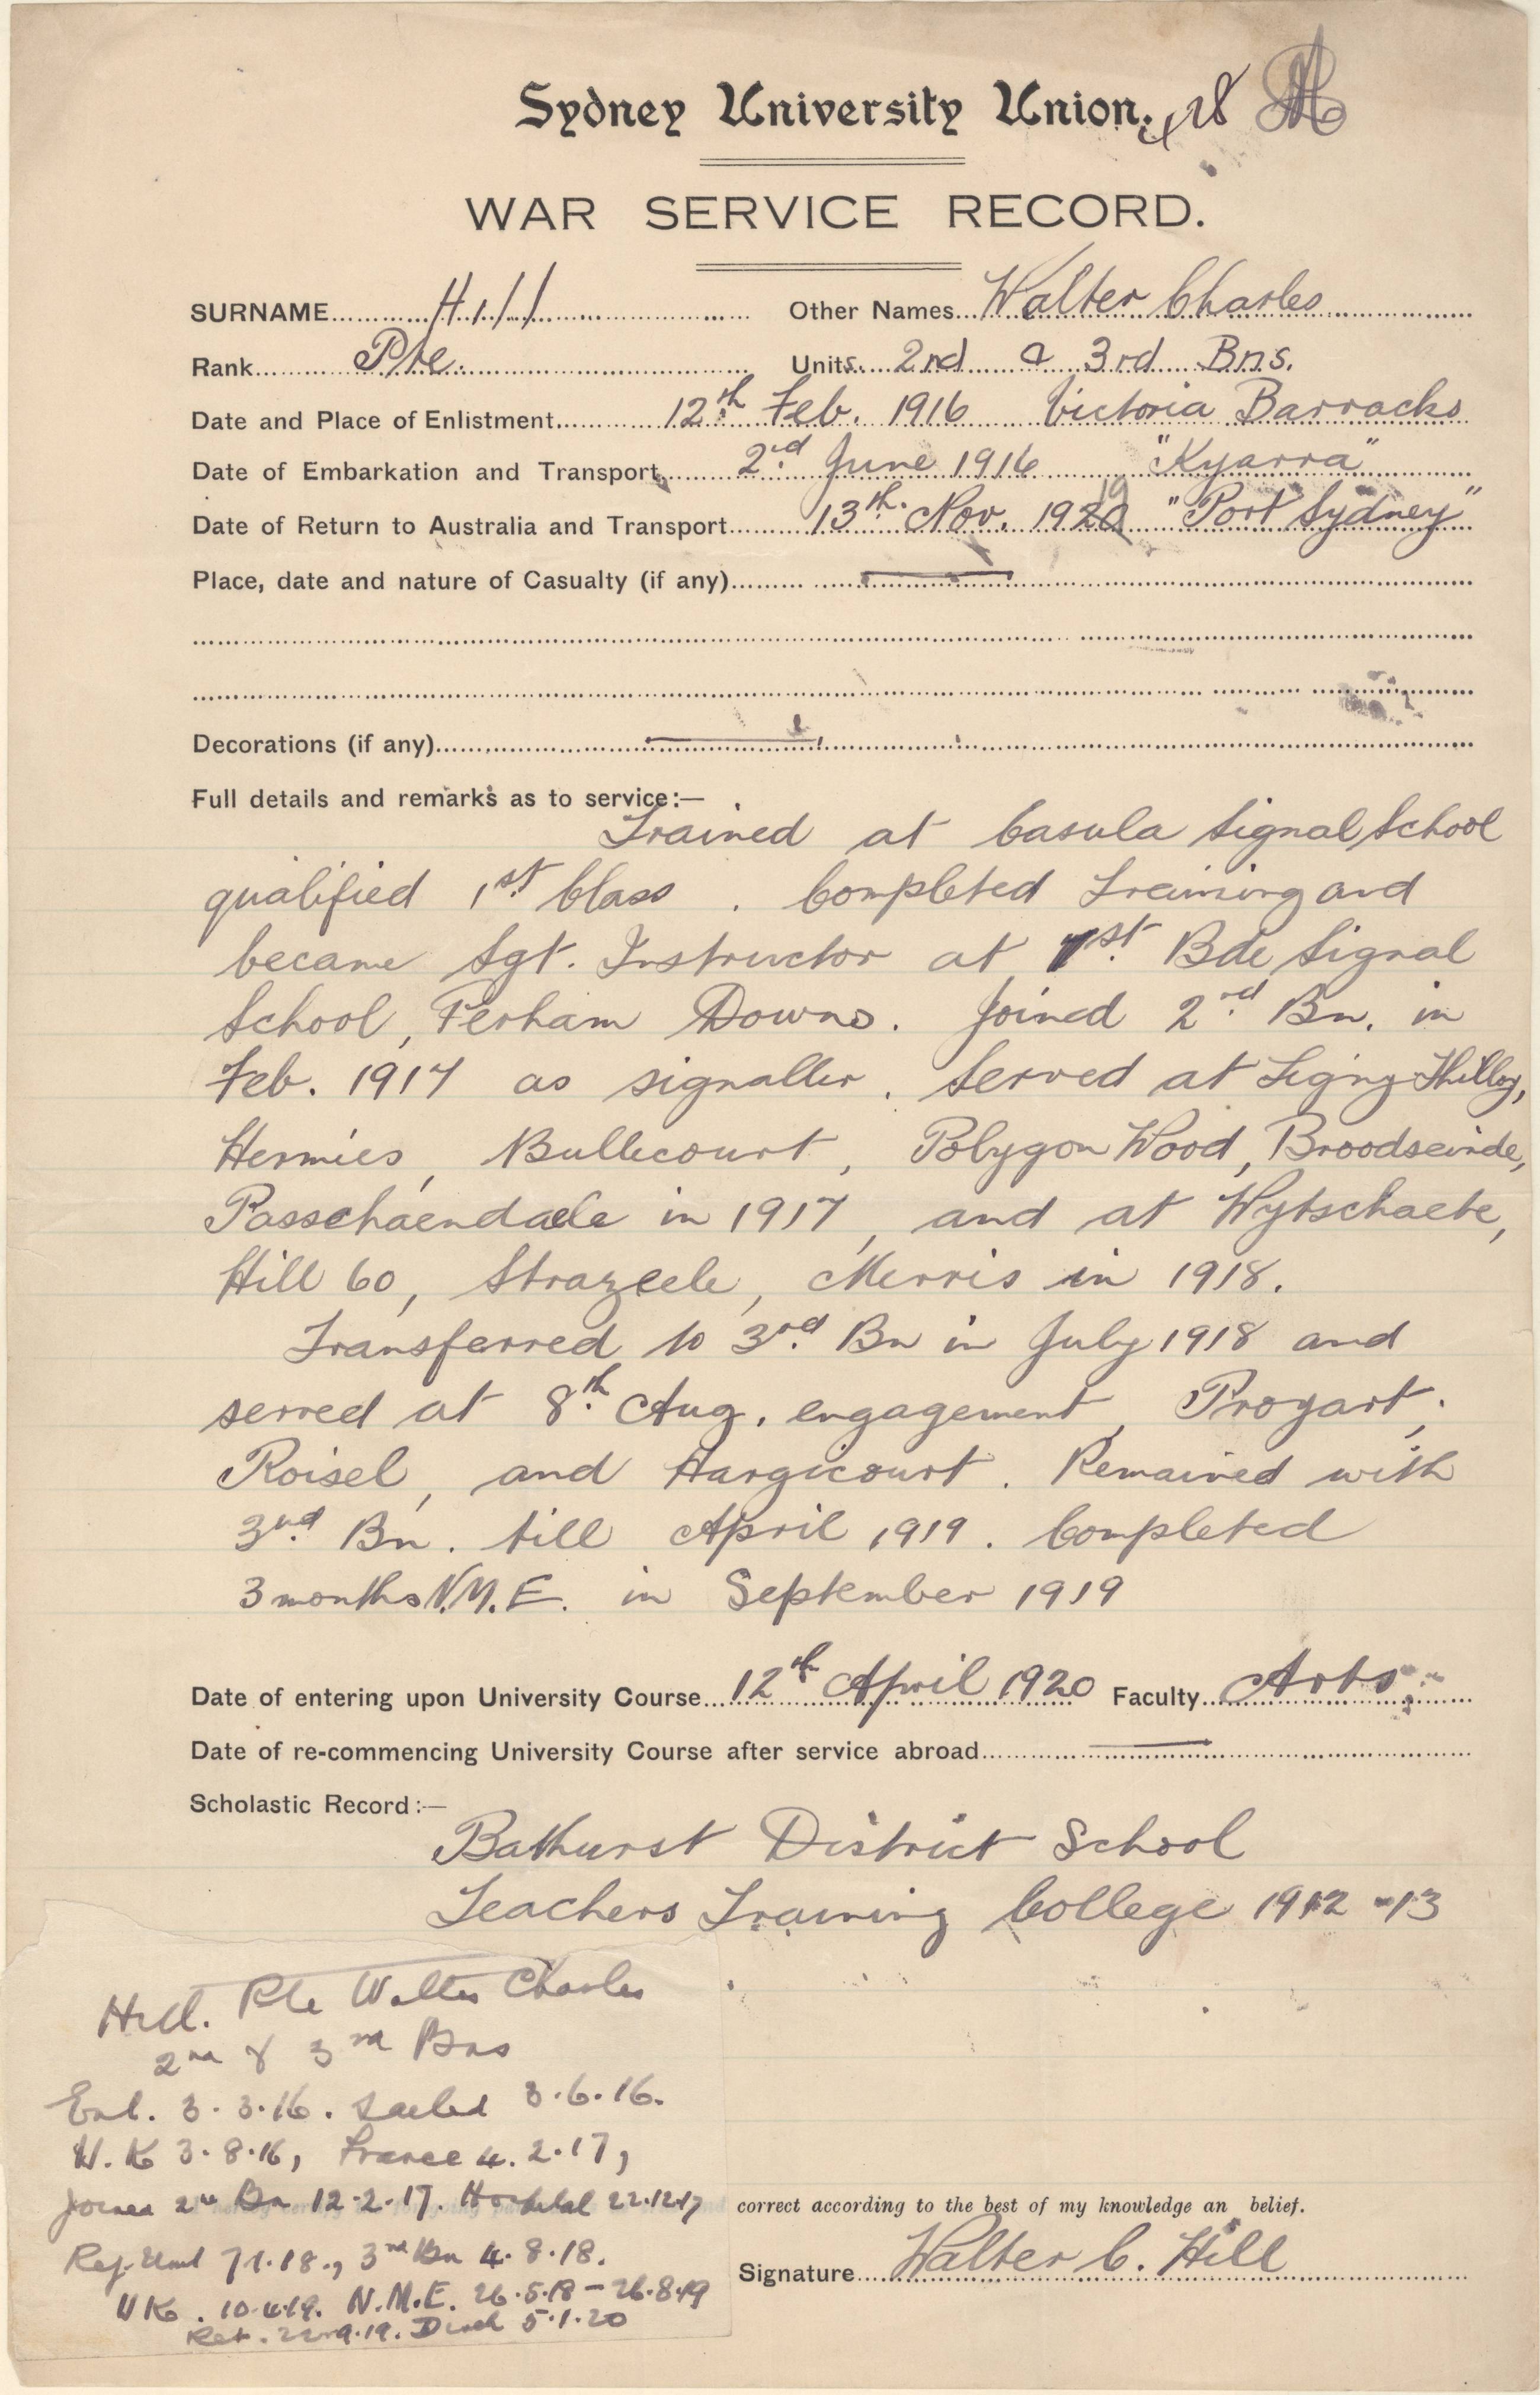 Sydney University Union. 18
WAR SERVICE RECORD.
SURNAME Hill Other Names Walter Charles
Rank Pte. Units. 2nd & 3rd Bns.
Date and Place of Enlistment 12th Feb. 1916 Victoria Barracks
Date of Embarkation and Transport 2nd June 1916 "Kyarra"
Date of Return to Australia and Transport 13th Nov. 1919 "Port Sydney"
Place, date and nature of Casualty (if any) —
Decorations (if any) —
Full details and remarks as to service:—
Trained at Casula Signal School
qualified 1st Class. Completed training and
became Sgt. Instructor at 1st Bde Signal
School, Perham Downs. Joined 2nd Bn. in
Feb. 1917 as signaller. Served at Ligny-Thilloy,
Hermies, Bullecourt, Polygon Wood, Broodseinde,
Passchaendaele in 1917, and at Wytschaete,
Hill 60, Strazeele, Merris in 1918.
Transferred to 3rd Bn in July 1918 and
served at 8th Aug. engagement, Proyart,
Roisel, and Hargicourt. Remained with
3rd Bn. till April 1919. Completed
3 months N.M.E. in September 1919
Date of entering upon University Course 12th April 1920 Faculty Arts
Date of re-commencing University Course after service abroad —
Scholastic Record:—
Bathurst District School
Teachers Training College 1912-13
Hill. Pte Walter Charles
2nd & 3rd Bns
Enl. 3.3.16. Sailed 3.6.16.
U.K 3.8.16, France 4.2.17,
Joined 2nd Bn 12.2.17. Hospital 22.12.17
Rej. Unit 7.1.18., 3rd Bn 4.8.18.
UK. 10.4.19. N.M.E. 26.5.18 - 26.8.19
Ret. 22.9.19. Disch 5.1.20
correct according to the best of my knowledge an belief.
Signature Walter C. Hill